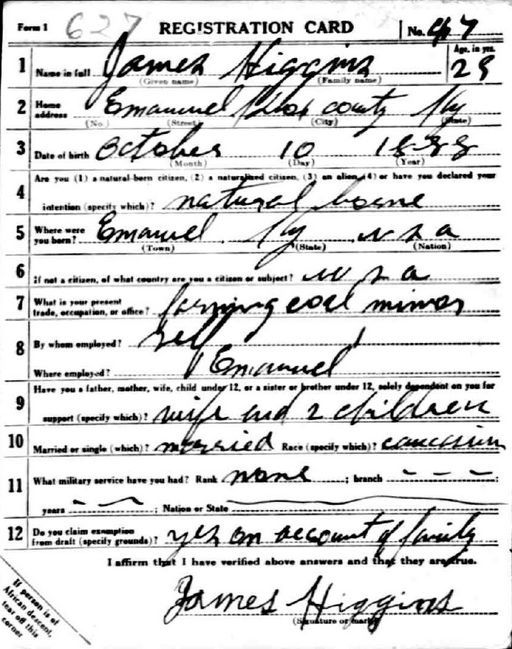 Form 1 627 REGISTRATION CARD No. 47
1 Name in full James Higgins Age, in yrs. 29
(Given name) (Family name)
2 Home address Emanuel county Ky
(No.) (Street) (City) (State)
3 Date of birth October 10 1888
(Month) (Day) (Year)
4 Are you (1) a natural-born citizen, (2) a naturalized citizen, (3) an alien, (4) or have you declared your
intention (specify which)? natural borne
5 Where were you born? Emanuel Ky U S A
(Town) (State) (Nation)
6 If not a citizen, of what country are you a citizen or subject? U S A
7 What is your present trade, occupation, or office? farming coal minor
8 By whom employed? Self
Where employed? Emanuel
9 Have you a father, mother, wife, child under 12, or a sister or brother under 12, solely dependent on you for
support (specify which)? wife and 2 children
10 Married or single (which)? married Race (specify which)? caucasion
11 What military service have you had? Rank none ; branch – – – ;
years ; Nation or State
12 Do you claim exemption from draft (specify grounds)? yes on account of family
I affirm that I have verified above answers and that they are true.
James Higgins
(Signature or mark)
If person is of
African descent,
tear off this
corner